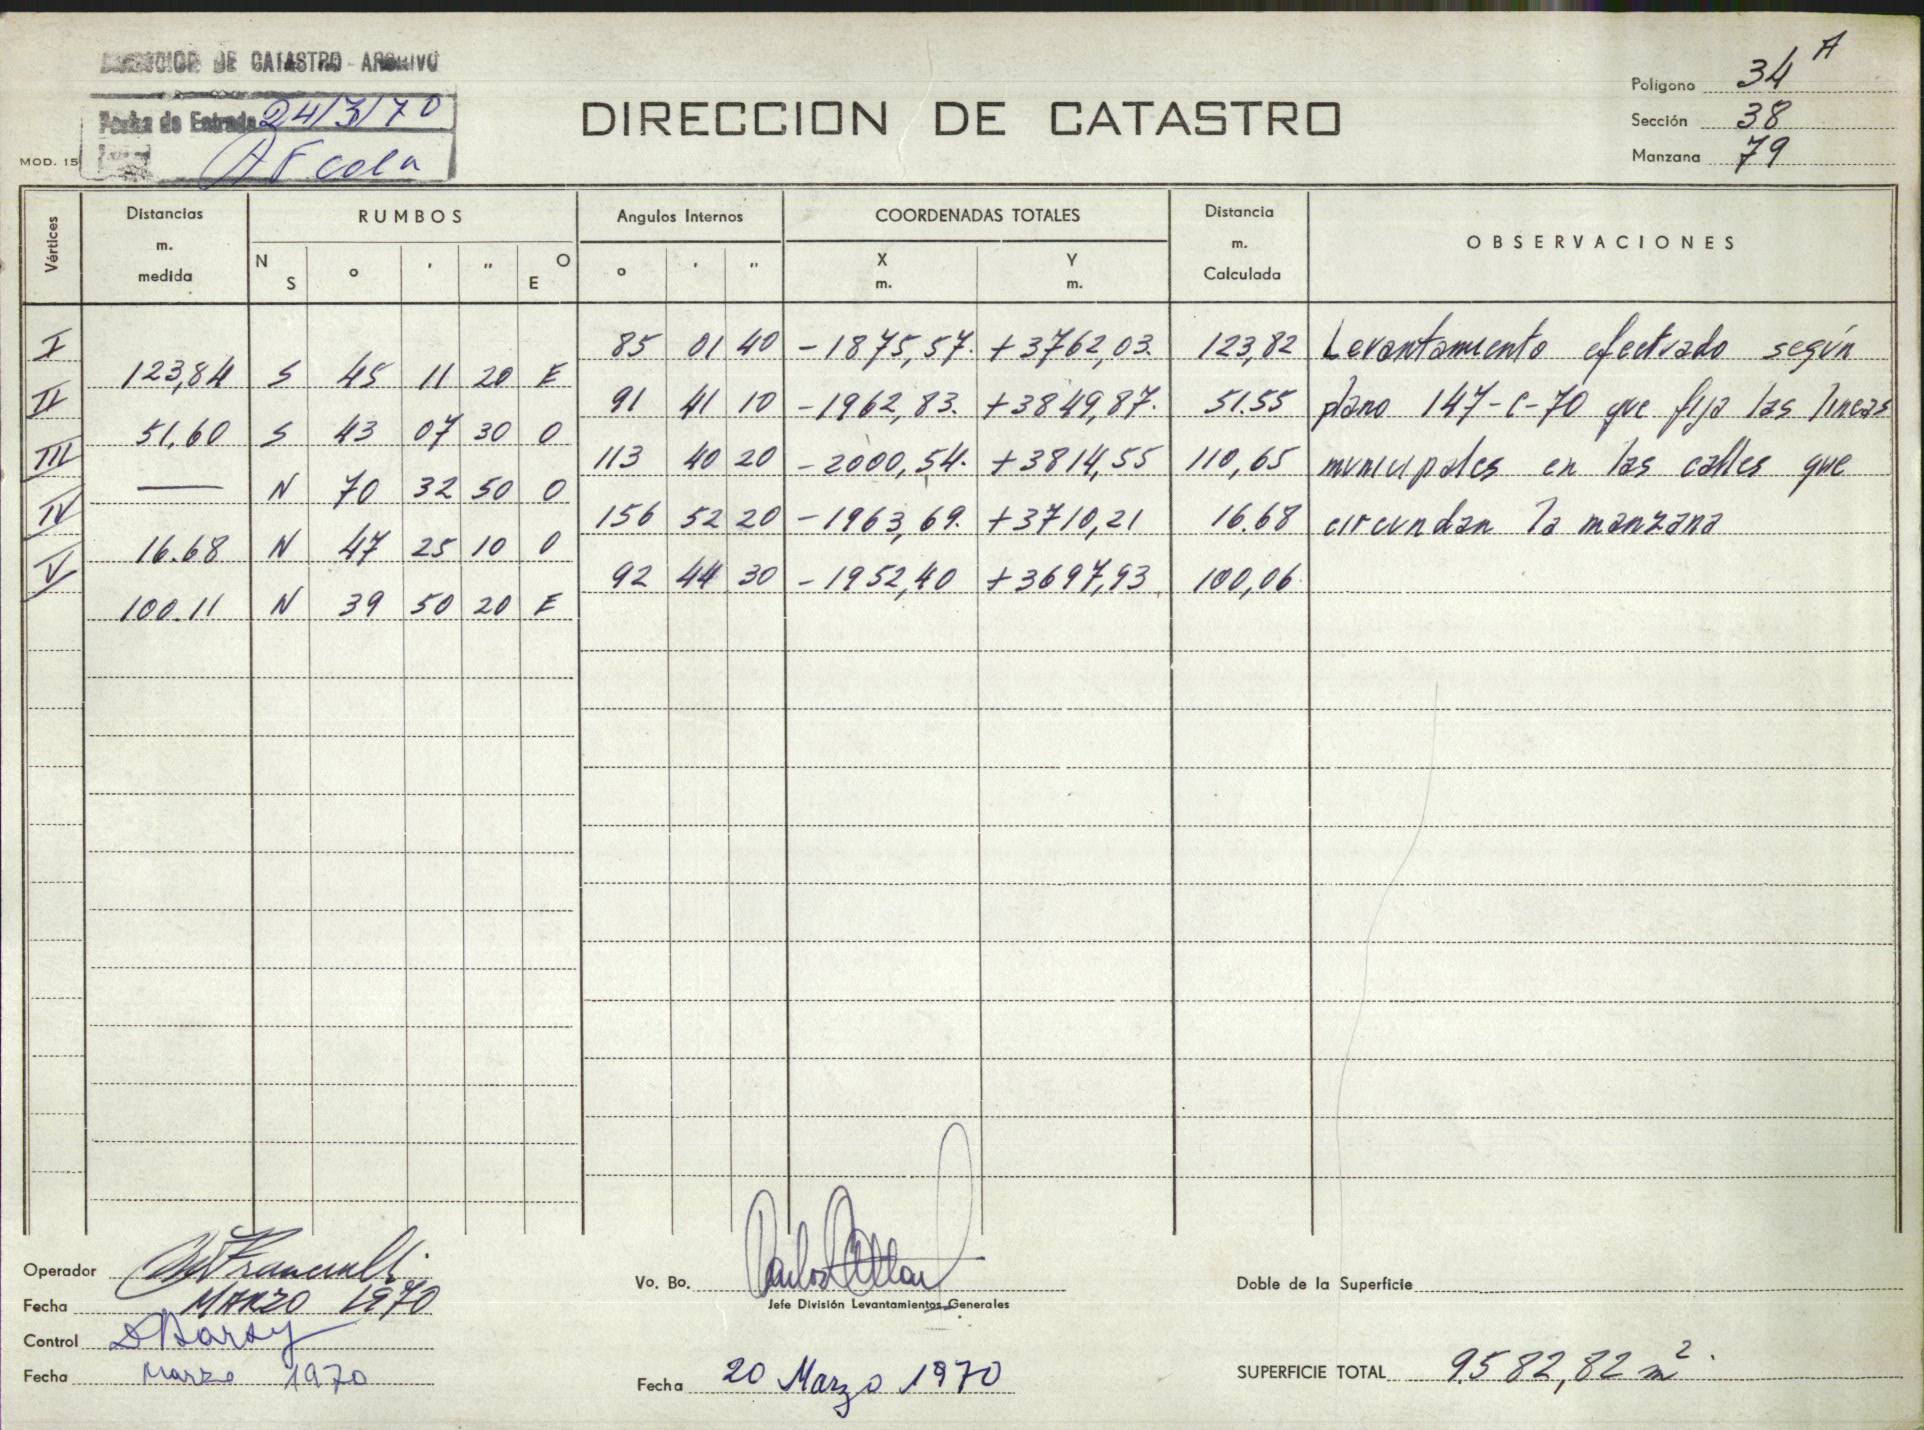 DIRECCION DE CATASTRO - ARCHIVO
Fecha de Entrada 24/3/70
MOD. 15
DIRECCION DE CATASTRO
Polígono 34 A
Sección 38
Manzana 79
Vértices Distancias m. medida RUMBOS Angulos Internos COORDENADAS TOTALES Distancia m. Calculada OBSERVACIONES
N S o ' " O E o ' " X m. Y m.
I 85 01 40 -1875,57. +3762,03. 123,82 Levantamiento efectuado según
123,84 S 45 11 20 E
II 91 41 10 -1962,83. +3849,87. 51.55 plano 147-C-70 que fija las lineas
51,60 S 43 07 30 O
III 113 40 20 -2000,54. +3814,55 110,65 municipales en las calles que
— N 70 32 50 O
IV 156 52 20 -1963,69. +3710,21 16.68 circundan la manzana
16.68 N 47 25 10 O
V 92 44 30 -1952,40 +3697,93 100,06
100.11 N 39 50 20 E
Operador
Fecha MARZO 1970
Control
Fecha Marzo 1970
Vo. Bo.
Jefe División Levantamientos Generales
Fecha 20 Marzo 1970
Doble de la Superficie
SUPERFICIE TOTAL 9582,82 m².